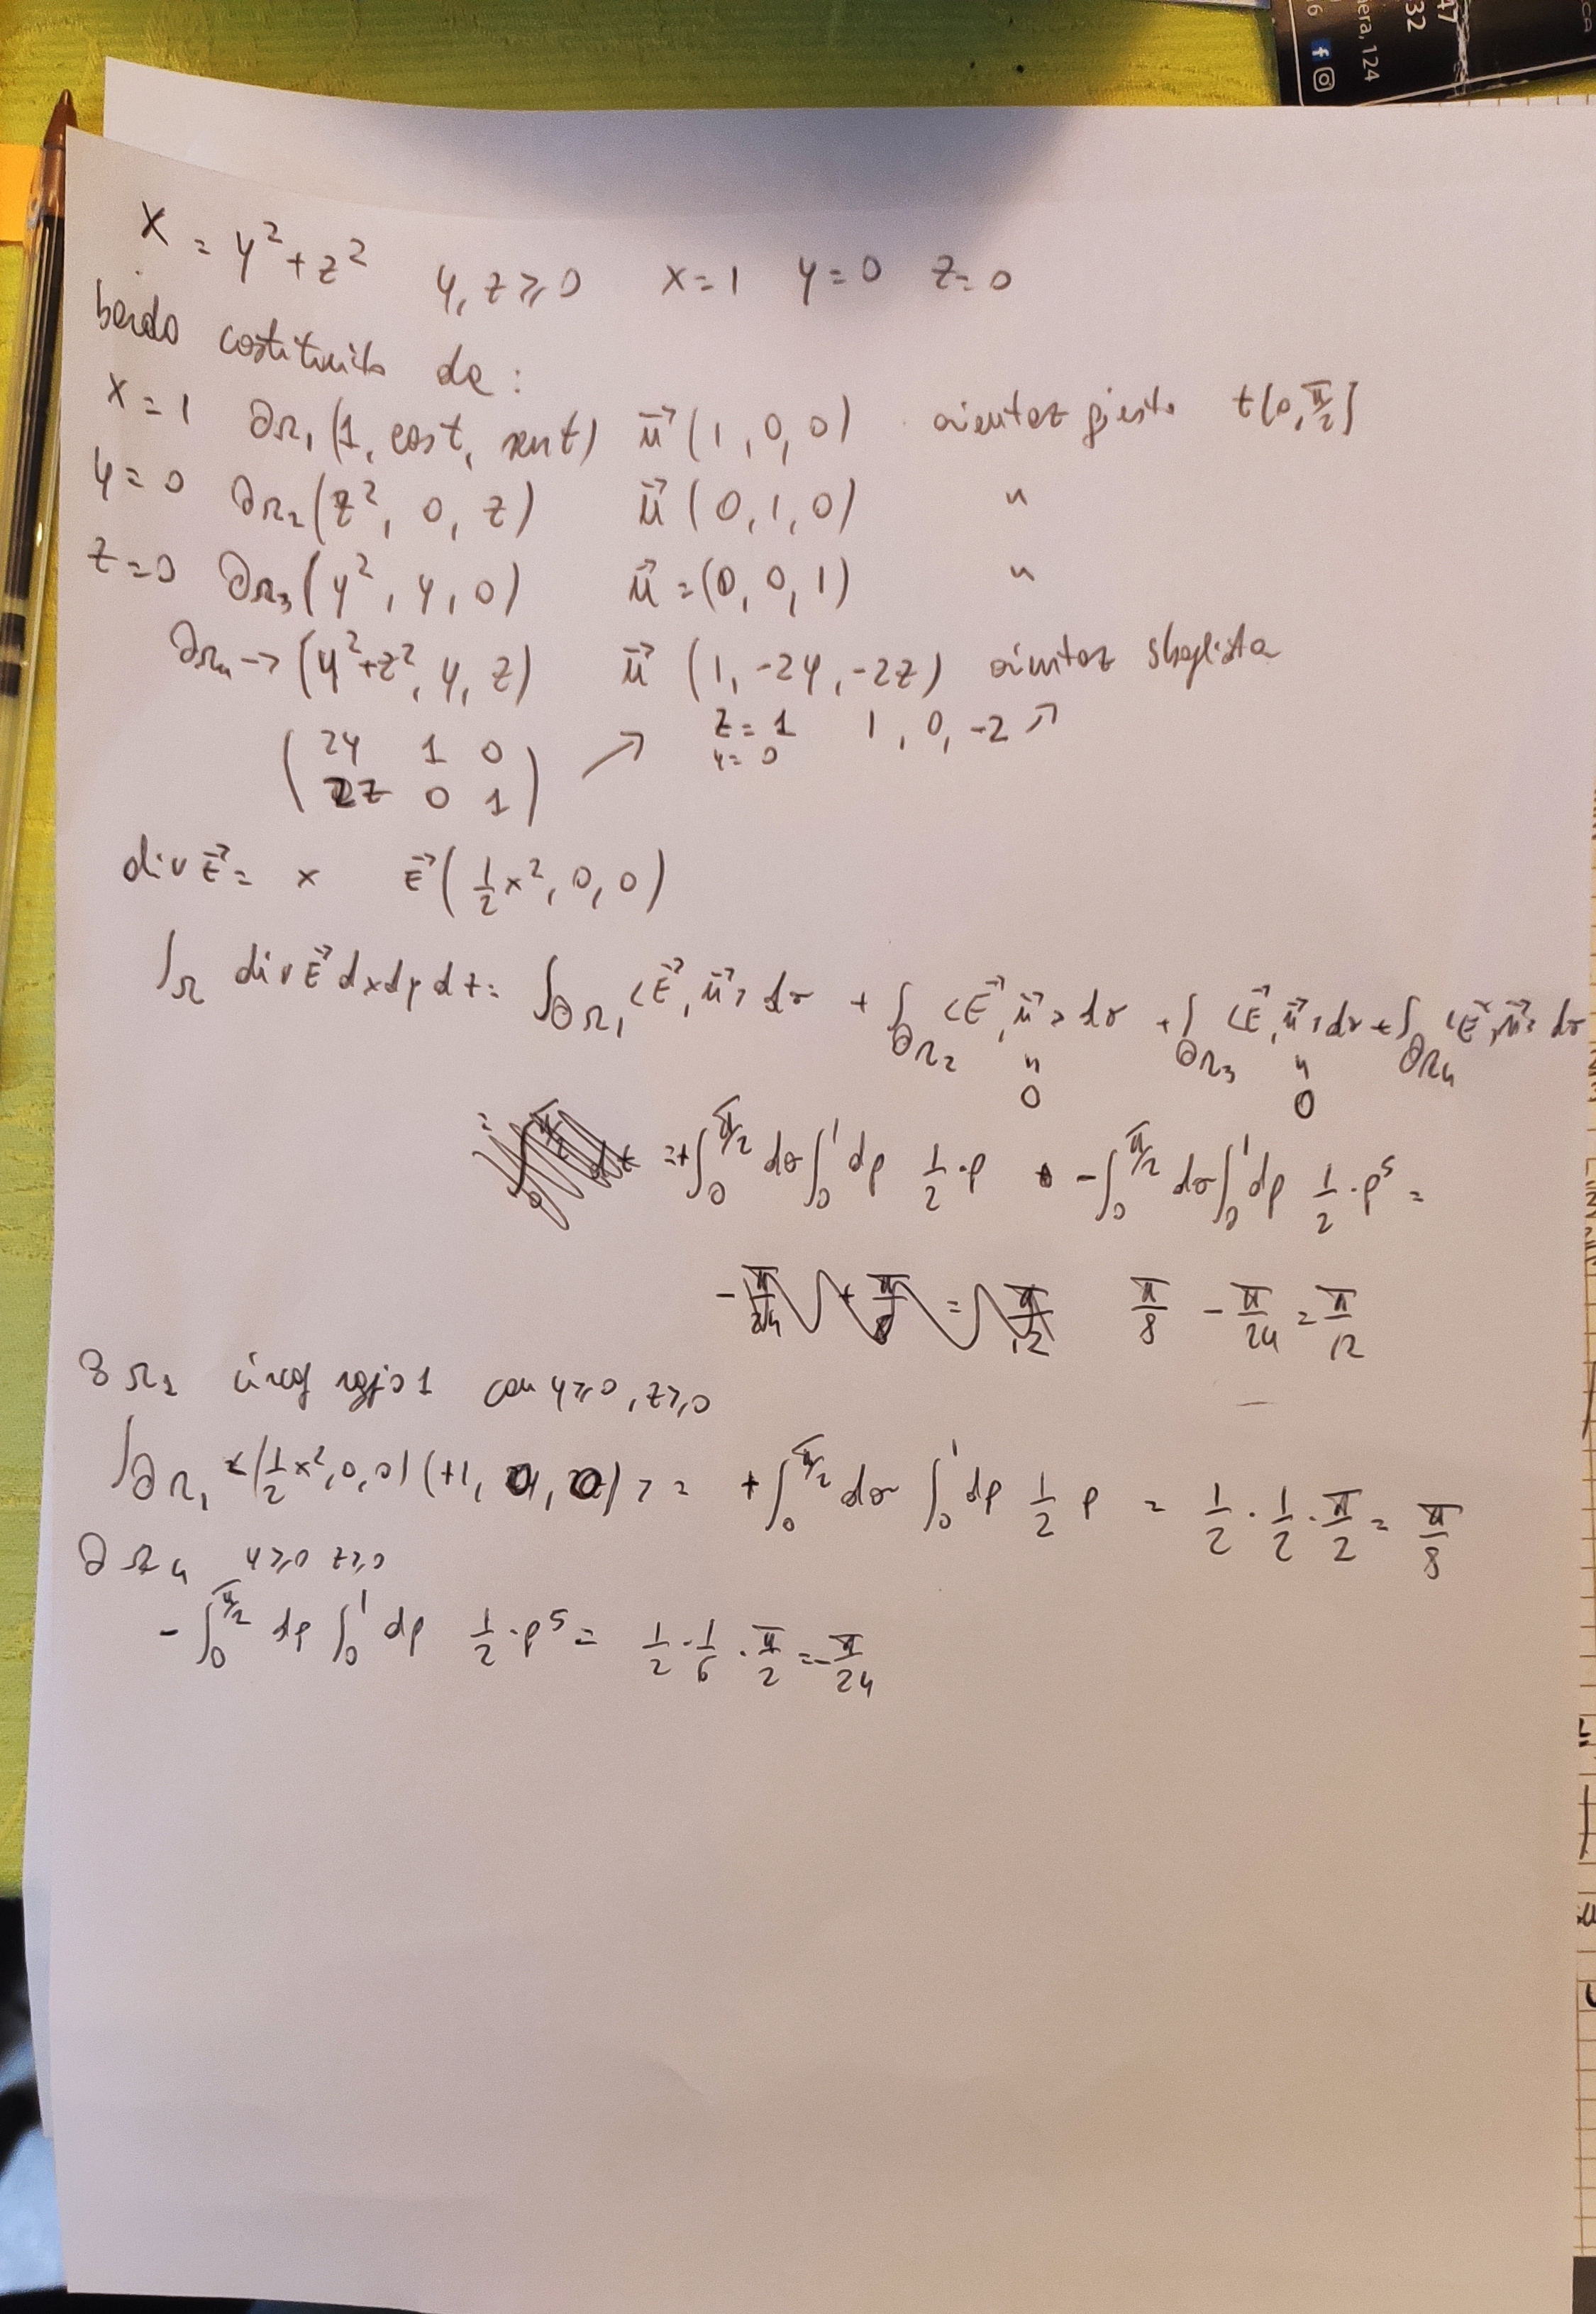 CCA
47
32
nera, 124
16
x = y² + z² y, z ≥ 0 x=1 y=0 z=0
bordo costituito da:
x=1 ∂Ω₁ (1, cost, sent) n⃗ (1, 0, 0) orientaz giusta t[0, π/2]
y=0 ∂Ω₂ (z², 0, z) n⃗ (0, 1, 0) "
z=0 ∂Ω₃ (y², y, 0) n⃗ = (0, 0, 1) "
∂Ω₄ → (y²+z², y, z) n⃗ (1, -2y, -2z) orientaz sbagliata
(2y 1 0 ↗ z=1 1, 0, -2 ↗
2z 0 1) y=0
div E⃗ = x E⃗ (1/2 x², 0, 0)
∫Ω div E⃗ dxdydz = ∫∂Ω₁ <E⃗, n⃗> dσ + ∫∂Ω₂ <E⃗, n⃗> dσ + ∫∂Ω₃ <E⃗, n⃗> dσ + ∫∂Ω₄ <E⃗, n⃗> dσ
" "
0 0
=+∫₀^π/2 dσ ∫₀¹ dρ 1/2 · ρ - ∫₀^π/2 dσ ∫₀¹ dρ 1/2 · ρ⁵ =
- π/24 + π/8 = π/12 π/8 - π/24 = π/12
con y≥0, z≥0
∫∂Ω₁ <(1/2 x², 0, 0) (+1, 0, 0)> = +∫₀^π/2 dσ ∫₀¹ dρ 1/2 ρ = 1/2 · 1/2 · π/2 = π/8
∂Ω₄ y≥0 z≥0
-∫₀^π/2 dρ ∫₀¹ dρ 1/2 · ρ⁵ = 1/2 · 1/6 · π/2 = -π/24